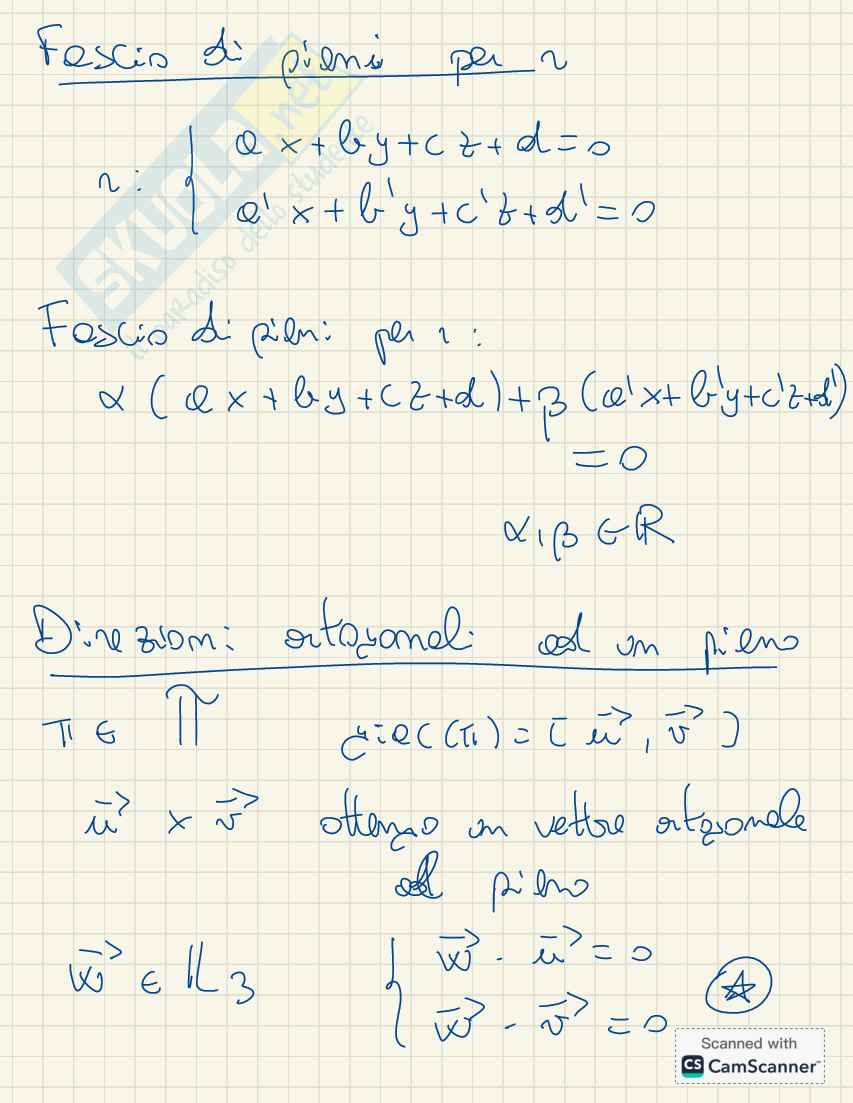 Fascio di piani per r
r: { ax + by + cz + d = 0
a'x + b'y + c'z + d' = 0
Fascio di piani per r:
α (ax + by + cz + d) + β (a'x + b'y + c'z + d')
= 0
α, β ∈ ℝ
Direzioni ortogonali ad un piano
π ∈ ℿ giac(π) = [u⃗, v⃗]
u⃗ × v⃗ ottengo un vettore ortogonale
al piano
{ w⃗ · u⃗ = 0
w⃗ · v⃗ = 0
SKUOLA.net
il paradiso dello studente
Scanned with
CS CamScanner